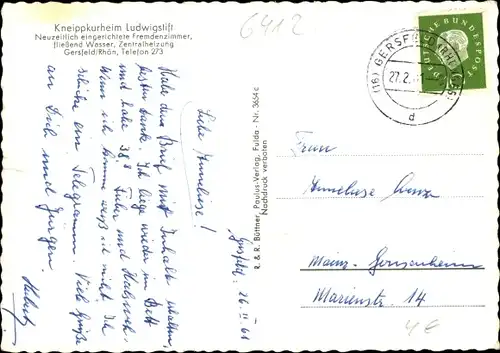 Kneippkurheim Ludwigstift
Neuzeitlich eingerichtete Fremdenzimmer,
fließend Wasser, Zentralheizung
Gersfeld/Rhön, Telefon 273
6412
(16) GERSFELD (RHÖN)
27.2.61
d
DEUTSCHE BUNDESPOST
Gersfeld, 26. II. 61
Liebe Anneliese!
Habe dein Brief mit Inhalt erhalten,
besten dank. Ich liege wieder im Bett
und habe 38⁵ Fieber und Halsweh.
Wann ich komme weiß ich nicht. Ich
schicke ein Telegramm. Viele Grüße
an Dich und Jürgen
Hubert
R. & R. Büttner, Paulus-Verlag, Fulda - Nr. 3654 c
Nachdruck verboten
Frau
Anneliese
Mainz-Gonsenheim
Marienstr. 14
4€